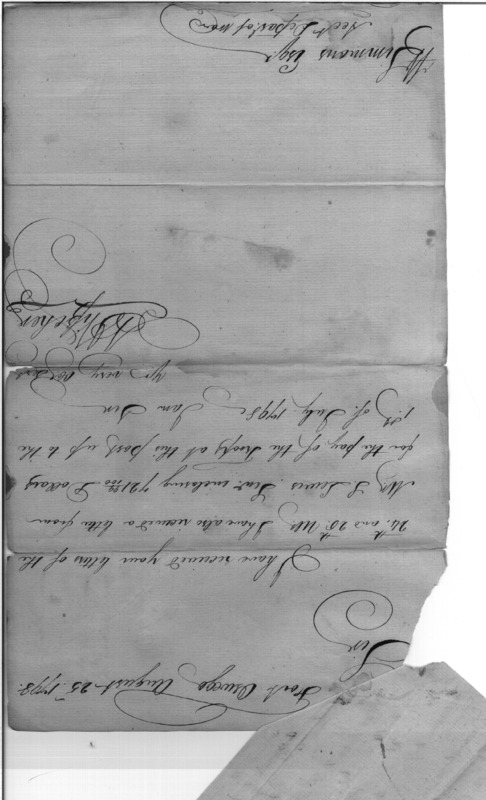 Fort Oswego August 25th 1798.
Sir
I have received your letters of the
24th and 28th Ulto. I have also received a letter from
Mr. S. Lewis, inclosing 721 Dollars
for the pay of the troops at this post up to the
1st of July 1798. I am Sir
Yr. very Obt. Servt
Wm Simmons Esqr.
Acct. Departt. of War